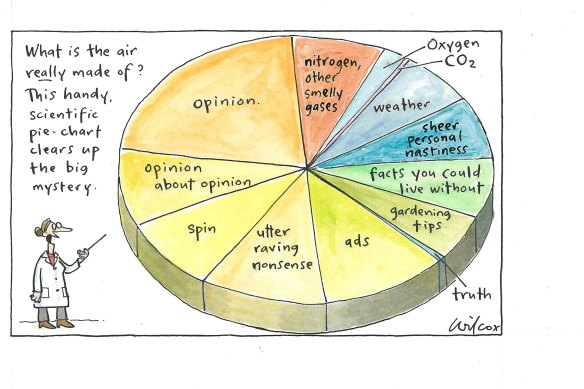 What is the air
really made of?
This handy,
scientific
pie-chart
clears up
the big
mystery.
opinion.
nitrogen,
other
smelly
gases
Oxygen
CO2
weather
sheer
personal
nastiness
facts you could
live without
gardening
tips
truth
ads
utter
raving
nonsense
spin
opinion
about opinion
Wilcox